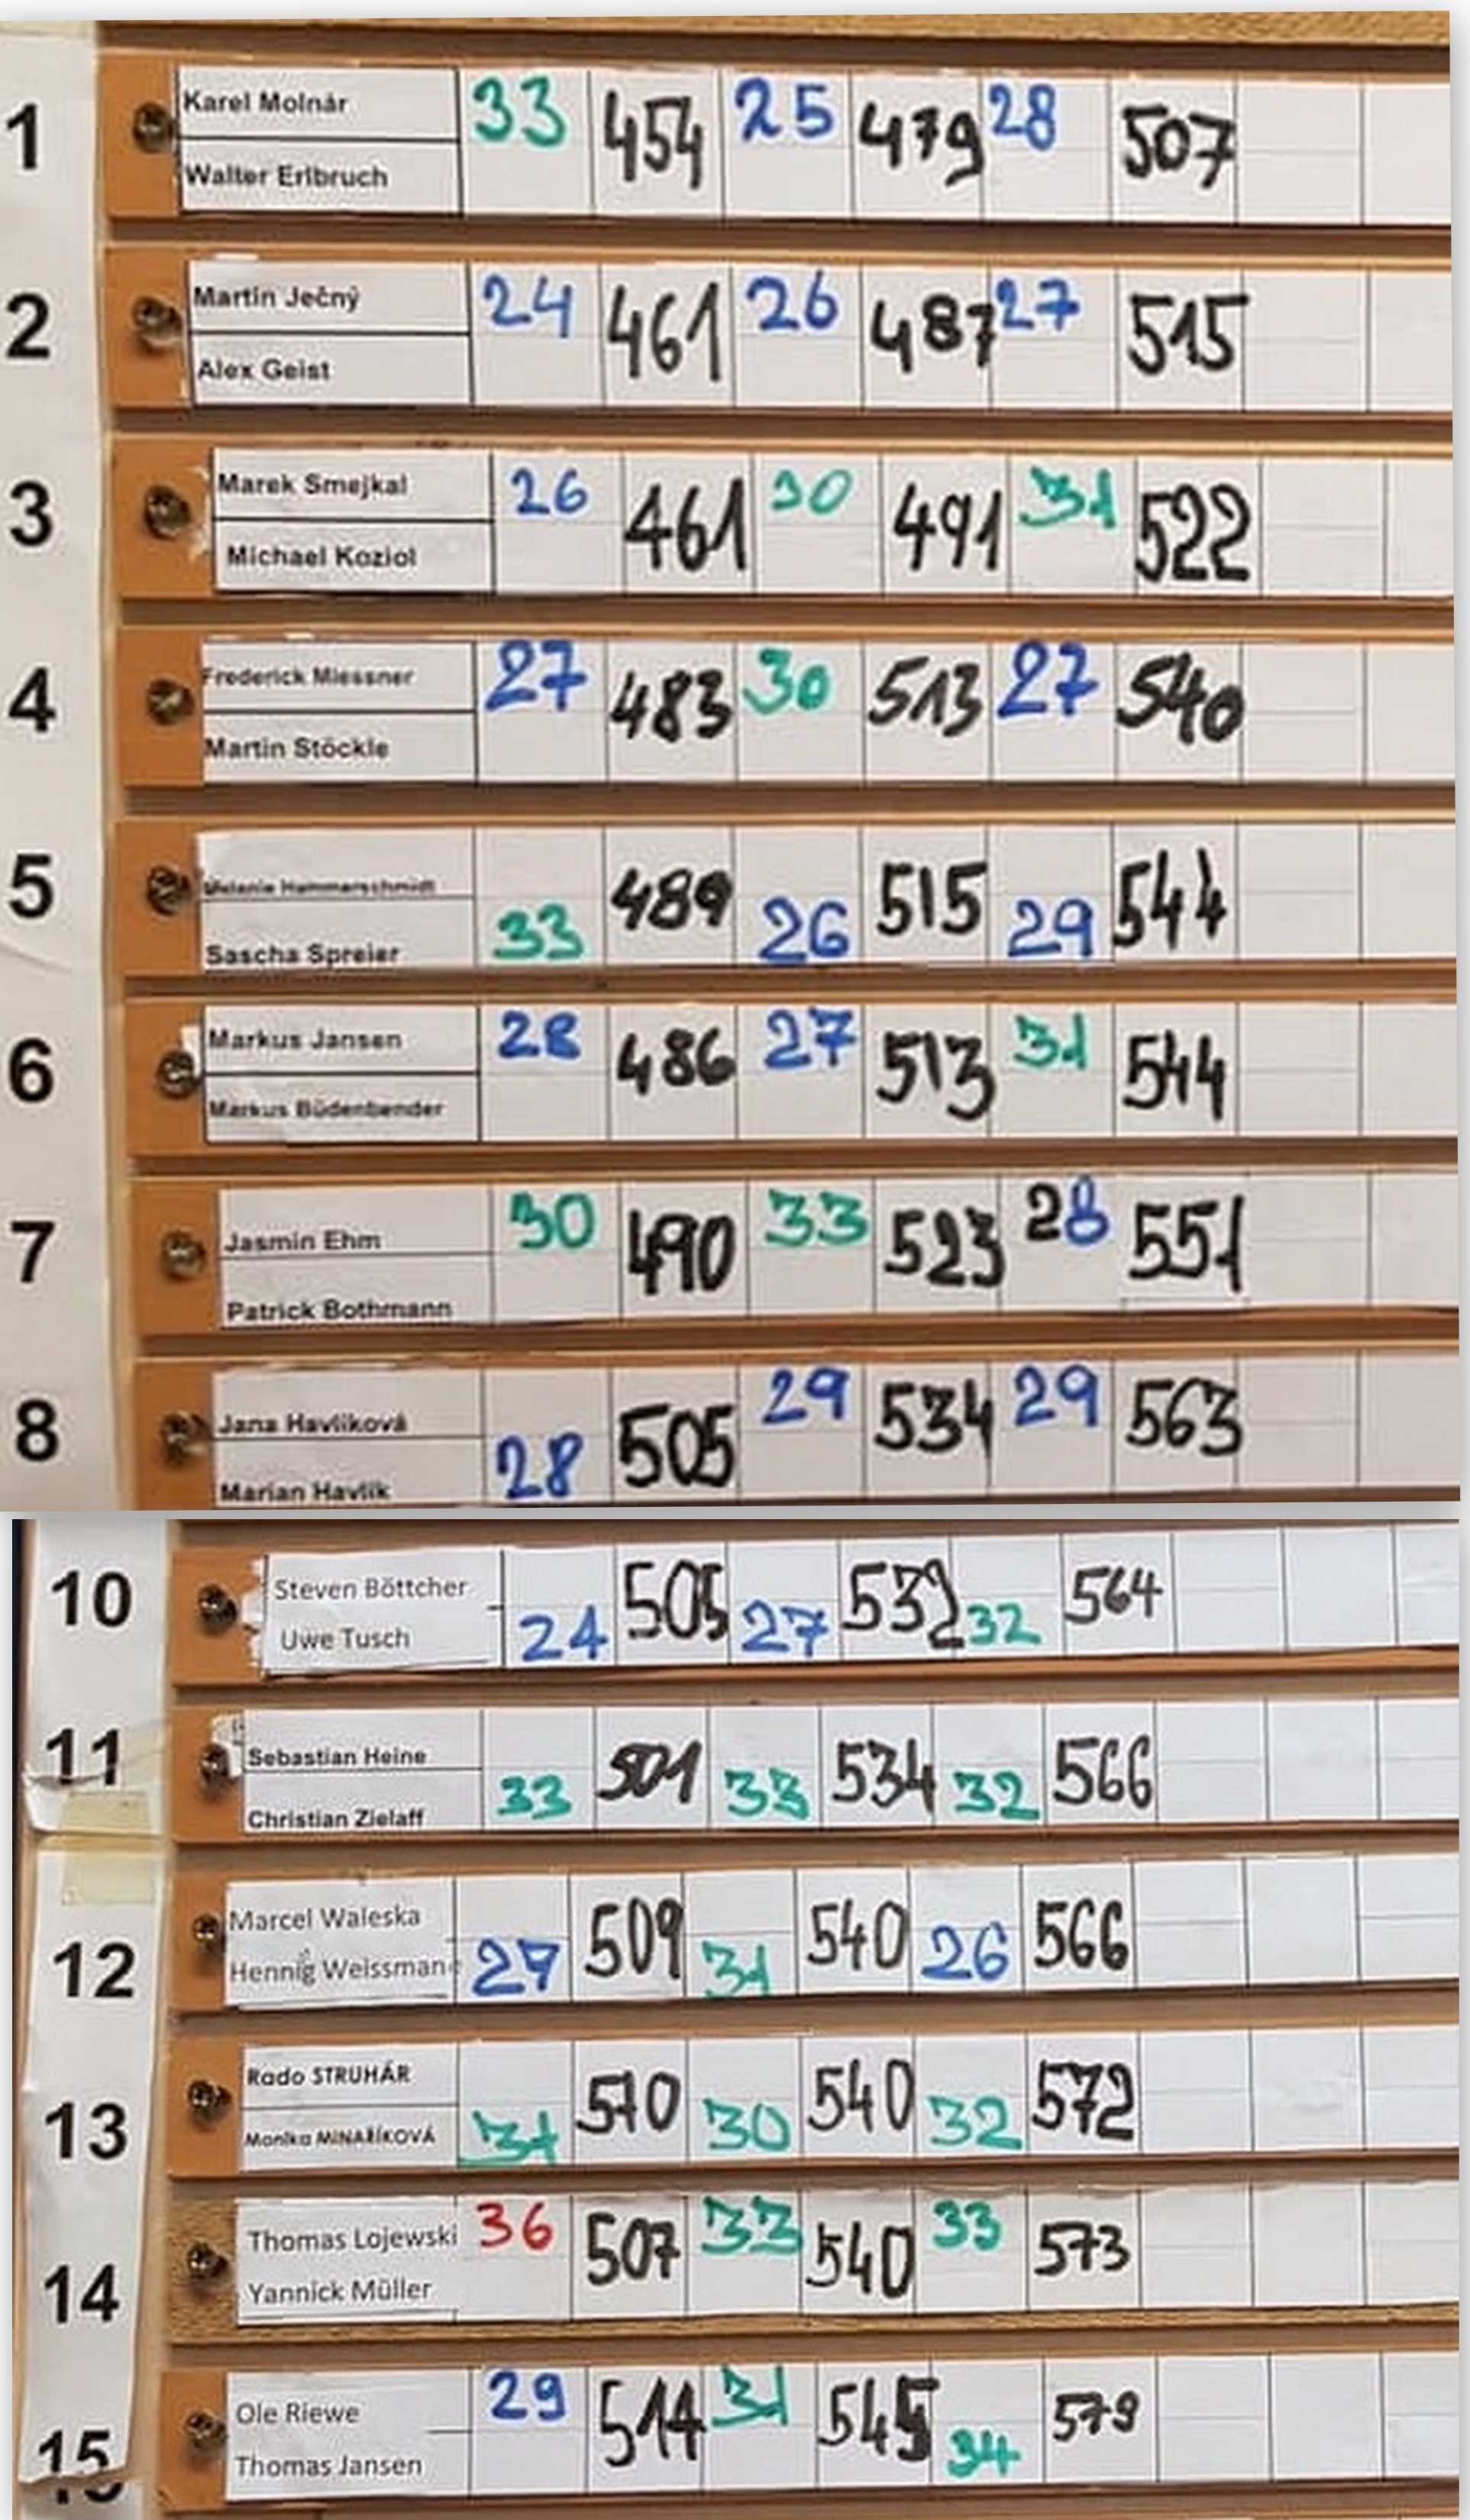 1
Karel Molnár
Walter Erlbruch
33 454 25 479 28 507
2
Martin Ječný
Alex Geist
24 461 26 487 27 515
3
Marek Smejkal
Michael Koziol
26 461 30 491 31 522
4
Frederick Miessner
Martin Stöckle
27 483 30 513 27 540
5
Melanie Hammerschmidt
Sascha Spreier
33 489 26 515 29 544
6
Markus Jansen
Markus Büdenbender
28 486 27 513 31 544
7
Jasmin Ehm
Patrick Bothmann
30 490 33 523 28 551
8
Jana Havlíková
Marian Havlík
28 505 29 534 29 563
10
Steven Böttcher
Uwe Tusch
24 505 27 532 32 564
11
Sebastian Heine
Christian Zielaff
33 501 33 534 32 566
12
Marcel Waleska
Hennig Weissmann
27 509 31 540 26 566
13
Rado STRUHÁR
Monika MINAŘÍKOVÁ
31 510 30 540 32 572
14
Thomas Lojewski
Yannick Müller
36 507 33 540 33 573
15
Ole Riewe
Thomas Jansen
29 514 31 545 34 579